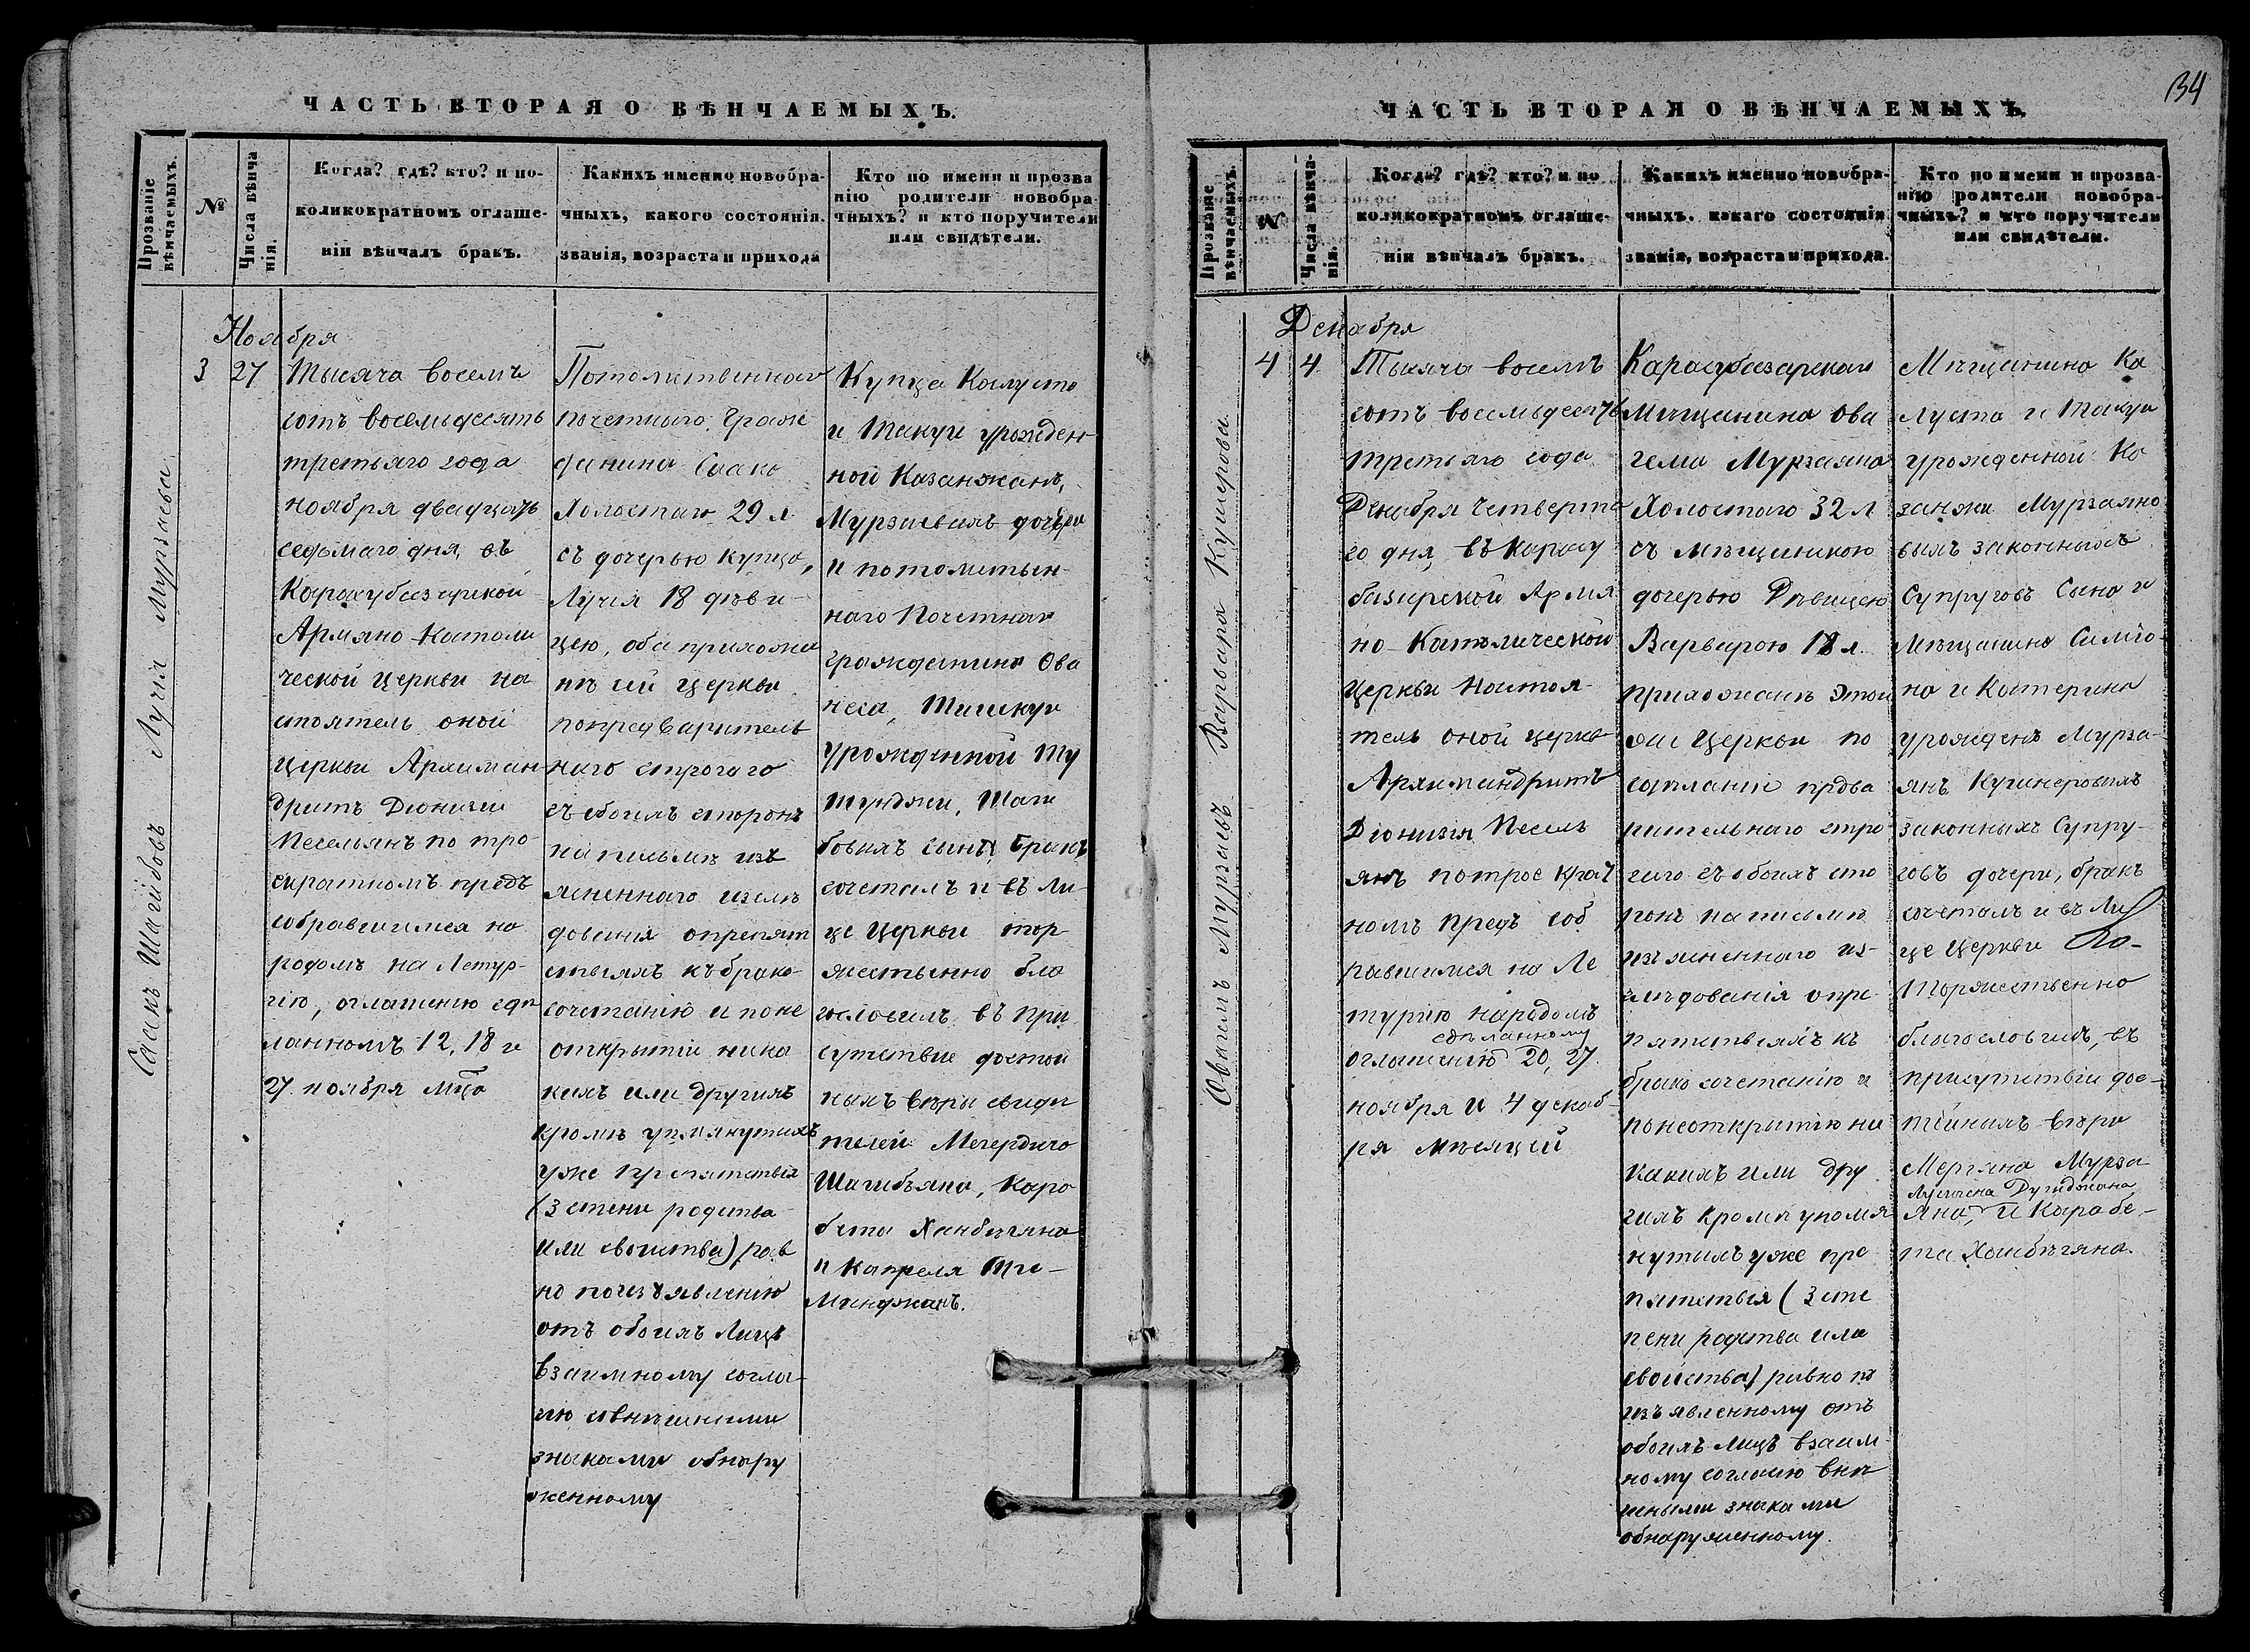 134
ЧАСТЬ ВТОРАЯ О ВѢНЧАЕМЫХЪ.
Прозваніе вѣнчаемыхъ.
№
Числа вѣнча
нія.
Когда? гдѣ? кто? и по-
коликократномъ оглаше-
ніи вѣнчалъ бракъ.
Какихъ именно новобра-
чныхъ, какого состоянія.
званія, возраста и прихода
Кто по имени и прозва
нію родители новобра-
чныхъ? и кто поручители
или свидѣтели.
Саакъ Шагибовъ Лучія Мурзаева
Ноября
3 27
Тысяча восемь
сотъ восемьдесятъ
третьяго года
ноября двадцать
седьмаго дня, въ
Карасубазарской
Армяно-Католи
ческой церкви на
стоятель оной
церкви Архиман
дритъ Діонизій
Песельянъ по тро
скратномъ предъ
собравшимся на
родомъ на Летур-
гію, оглашенію сдѣ
ланномъ 12, 18 и
27 ноября мца
Потомственнаго
почетнаго Граж
данина Саака
Холостаго 29 л.
съ дочерью купца,
Лучія 18 дѣви-
цею, оба прихожа
нъ сій церкви
попредваритель
наго строгаго
съ обоихъ сторонъ
написьмѣ изъ
ясненнаго изслѣ
дованія опрепят
ствіяхъ къ брако-
сочетанію и поне
открытіи ника
кихъ или другихъ
кромѣ упомянутыхъ
уже препятствія
(3 степи родства
или своиства) рав
но поизъявленію
отъ обоихъ Лицъ
взаимному согла-
сію овнѣшними
знаками обнару
женному
Купца Калуста
и Такуи урожден-
ной Казанжанъ,
Мурзаевыхъ дочери
и потомствен-
наго Почетнаго
гражданина Ова
неса, Тишкуи
урожденной Ту
тунджи, Шаги
бовыхъ сынъ, бракъ
сочеталъ и въ Ли-
це Церкви тор-
жественно бла
гословилъ въ при
сутствіе достой
ныхъ вѣры свидѣ
телей Мегердича
Шагибъяна, Кара
бета Хамбачяна
и Капреля Ти-
минджанъ.
ЧАСТЬ ВТОРАЯ О ВѢНЧАЕМЫХЪ.
Прозваніе вѣнчаемыхъ.
№
Числа вѣнча-
нія.
Когда? гдѣ? кто? и по
коликократномъ оглаше-
ніи вѣнчалъ бракъ.
Какихъ именно новобра-
чныхъ. какаго состоянія
званія, возраста и прихода.
Кто по имени и прозва-
нію родители новобра-
чныхъ? и кто поручители
или свидѣтели.
Овагемъ Мурзаевъ Варвара Кушнерова
Декабря
4 4
Тысяча восемъ
сотъ восемьдесятъ
третьяго года
Декабря четверта
го дня, въ Карасу
базарской Армя
но-Католической
Церкви Настоя-
тель оной церкви
Архимандритъ
Діонизія Песель
янъ потрое крат
номъ предъ соб
равшимся на Ле
тургію народомъ
сдѣланному
оглашенію 20, 27.
ноября и 4 декаб-
ря мѣсяцей
Карасубазарскаго
Мѣщанина Ова
гема Мурзаяна
Холостаго 32 л
съ мѣщанкою
дочерью Дѣвицею
Варварою 18 л.
прихожанъ этой
же Церкви по
согланіи предва
рительнаго стро
гаго съ обоихъ сто
ронъ написьмѣ
изъясненнаго из-
слѣдованія опре
пятствіяхъ къ
брако сочетанію и
понеоткрытію ни
какихъ или дру
гихъ кромѣ упомя
нутыхъ уже пре
пятствія (3 сте
пени родства или
свойства) равно по
изъявленному отъ
обоихъ лицъ взаим
ному согласію внѣ
шными знаками
обнаруженному.
Мѣщанина Ка
луста и Такуи
урожденной Ка
занжи Мурзаяно
выхъ законныхъ
Супруговъ Сына и
Мѣщанина Симіо-
на и Катерина
урожденъ Мурза-
янъ Кушнеровыхъ
законныхъ Супру-
говъ дочери, бракъ
сочеталъ и въ Ли
це Церкви
Торжественно
благословилъ, въ
присутствіи дос-
тойныхъ вѣри
Мергяна Мурза
Лусигена Дуиджана
яна, и Карабе-
та Хамбачяна.